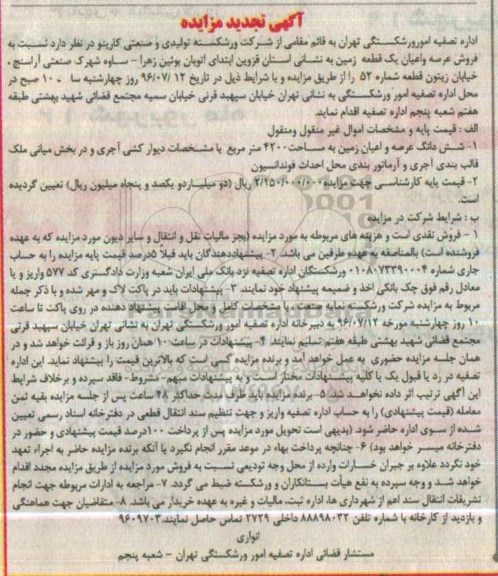 آگهی تجدید مزایده
اداره تصفیه امورورشکستگی تهران به قائم مقامی از شرکت ورشکسته تولیدی و صنعتی کارینو در نظر دارد نسبت به
فروش عرصه واعیان یک قطعه زمین به نشانی استان قزوین ابتدای اتوبان بوئین زهرا - ساوه شهرک صنعتی آراسنج ،
خیابان زیتون قطعه شماره ۵۲ را از طریق مزایده و با شرایط ذیل در تاریخ ۹۶/۰۷/۱۲ روز چهارشنبه ساعت ۱۰ صبح در
محل اداره تصفیه امور ورشکستگی به نشانی تهران خیابان سپهبد قرنی خیابان سمیه مجتمع قضائی شهید بهشتی طبقه
هفتم شعبه پنجم اداره تصفیه اقدام نماید.
الف : قیمت پایه و مشخصات اموال غیر منقول ومنقول
۱- شش دانگ عرصه و اعیان زمین به مساحت ۴۲۰۰ متر مربع با مشخصات دیوار کشی آجری و در بخش میانی ملک
قالب بندی آجری و آرماتور بندی محل احداث فوندانسیون
۲- قیمت پایه کارشناسی جهت مزایده ۲/۱۵۰/۰۰۰/۰۰۰ ریال (دو میلیاردو یکصد و پنجاه میلیون ریال) تعیین گردیده
است.
ب : شرایط شرکت در مزایده
۱ - فروش نقدی است و هزینه های مربوطه به مورد مزایده (بجز مالیات نقل و انتقال و سایر دیون مورد مزایده که به عهده
فروشنده است) بالمناصفه به عهده طرفین می باشد. ۲- پیشنهاددهندگان باید قبلا ۵درصد قیمت پایه مزایده را به حساب
جاری شماره ۰۱۰۸۰۷۳۳۹۰۰۰۴ ورشکستگان اداره تصفیه نزد بانک ملی ایران شعبه وزارت دادگستری کد ۵۷۷ واریز و یا
معادل رقم فوق چک بانکی اخذ و ضمیمه پیشنهاد خود نمایند. ۳- پیشنهادات باید در پاکت لاک و مهر شده و با ذکر جمله
مربوط به مزایده شرکت ورشکسته نمایه صنعت با مشخصات کامل و محل اقامت پیشنهاد دهنده در روی پاکت تا ساعت
۱۰ روز چهارشنبه مورخه ۹۶/۰۷/۱۲ به دبیرخانه اداره تصفیه امور ورشکستگی تهران به نشانی تهران خیابان سپهبد قرنی
مجتمع قضائی شهید بهشتی طبقه هفتم تسلیم نمایند. ۴- پیشنهادات در ساعت۱۰ همان روز باز و قرائت خواهد شد و در
همان جلسه مزایده حضوری به عمل خواهد آمد و برنده مزایده کسی است که بالاترین قیمت را پیشنهاد نماید. این اداره
تصفیه در رد یا قبول یک یا کلیه پیشنهادات مختار است و به پیشنهادات مبهم ، مشروط ، فاقد سپرده و برخلاف شرایط
این آگهی ترتیب اثر داده نخواهد شد. ۵- برنده مزایده باید ظرف مدت حداکثر ۴۸ ساعت پس از جلسه مزایده بقیه ثمن
معامله (قیمت پیشنهادی) را به حساب اداره تصفیه واریز و جهت تنظیم سند انتقال قطعی در دفترخانه اسناد رسمی تعیین
شده از سوی اداره حاضر شود. (بدیهی است تحویل مورد مزایده پس از پرداخت ۱۰۰درصد قیمت پیشنهادی و حضور در
دفترخانه میسر خواهد بود) ۶- چنانچه پرداخت بهاء در موعد مقرر انجام نگیرد یا آنکه برنده مزایده حاضر به اجراء تعهد
خود نگردد علاوه بر جبران خسارات وارده از محل وجه تودیعی نسبت به فروش مورد مزایده از طریق مزایده مجدد اقدام
خواهد شد و وجه سپرده به نفع هیأت بستانکاران و ورشکسته ضبط می گردد. ۷- مراجعه به ادارات مربوطه جهت انجام
تشریفات انتقال سند اعم از شهرداری ها، اداره ثبت، مالیات و غیره به عهده خریدار می باشد. ۸- متقاضیان جهت هماهنگی
و بازدید از کارخانه با شماره تلفن ۸۸۸۹۸۰۳۲ داخلی ۲۷۲۹ تماس حاصل نمایند.۹۶۰۹۷۰۳
انواری
مستشار قضائی اداره تصفیه امور ورشکستگی تهران - شعبه پنجم